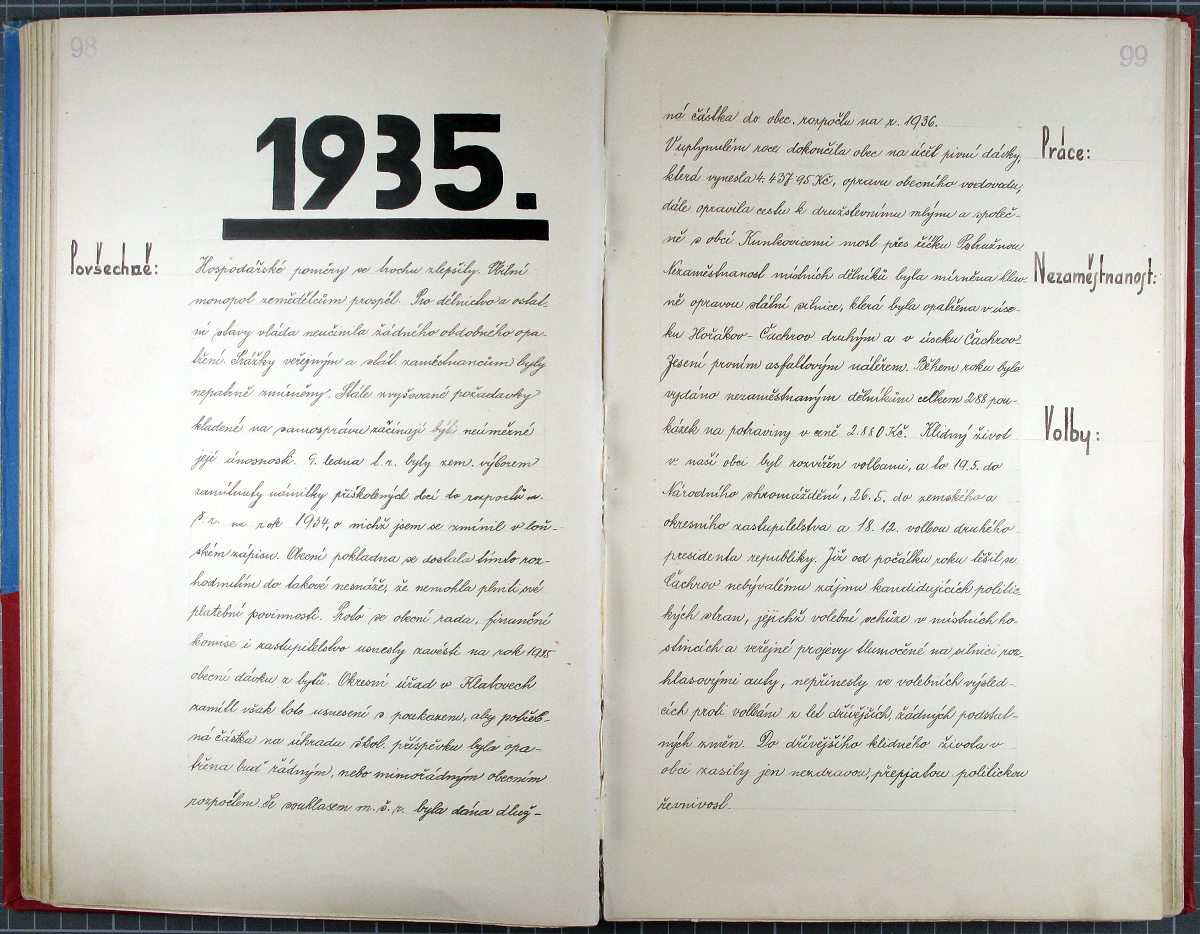 98
1935.
Povšechné:
Hospodářské poměry se trochu zlepšily. Obilní
monopol zemědělcům prospěl. Pro dělnictvo a ostat-
ní stavy vláda neučinila žádného obdobného opa-
tření. Srážky veřejným a stát. zaměstnancům byly
nepatrně zmírněny. Stále zvyšované požadavky
kladené na samosprávu začínají býti neúměrné
její únosnosti. 9. ledna t. r. byly zem. výborem
zamítnuty námitky přiškolených obcí do rozpočtů m.
š. r. na rok 1934, o nichž jsem se zmínil v loň-
ském zápisu. Obecní pokladna se dostala tímto roz-
hodnutím do takové nesnáze, že nemohla plniti své
platební povinnosti. Proto se obecní rada, finanční
komise i zastupitelstvo usnesly zavésti na rok 1935
obecní dávku z bytů. Okresní úřad v Klatovech
zamítl však toto usnesení s poukazem, aby potřeb-
ná částka na úhradu škol. příspěvku byla opa-
třena buď řádným, nebo mimořádným obecním
rozpočtem. Se souhlasem m. š. r. byla dána dluž-
99
ná částka do obec. rozpočtu na r. 1936.
Práce:
V uplynulém roce dokončila obec na účět pivní dávky,
která vynesla 4.437 95 Kč, opravu obecního vodovodu,
dále opravila cestu k družstevnímu mlýnu a společ-
ně s obcí Kunkovicemi most přes říčku Pstružnou.
Nezaměstnanost:
Nezaměstnanost místních dělníků byla mírněna hlav-
ně opravou státní silnice, která byla opatřena v úse-
ku Hořákov - Čachrov druhým a v úseku Čachrov
Jesení prvním asfaltovým nátěrem. Během roku bylo
vydáno nezaměstnaným dělníkům celkem 288 pou-
kázek na potraviny v ceně 2.880 Kč. Klidný život
Volby:
v naší obci byl rozvířen volbami, a to 19.5. do
Národního shromáždění, 26.5. do zemského a
okresního zastupitelstva a 18. 12. volbou druhého
presidenta republiky. Již od počátku roku těšil se
Čachrov nebývalému zájmu kandidujících politic.
kých stran, jejichž volební schůze v místních ho-
stincích a veřejné projevy tlumočené na silnici roz-
hlasovými auty, nepřinesly ve volebních výsled-
cích proti volbám z let dřívějších, žádných podstat-
ných změn. Do dřívějšího klidného života v
obci zasily jen nezdravou, přepjatou politickou
řevnivost.